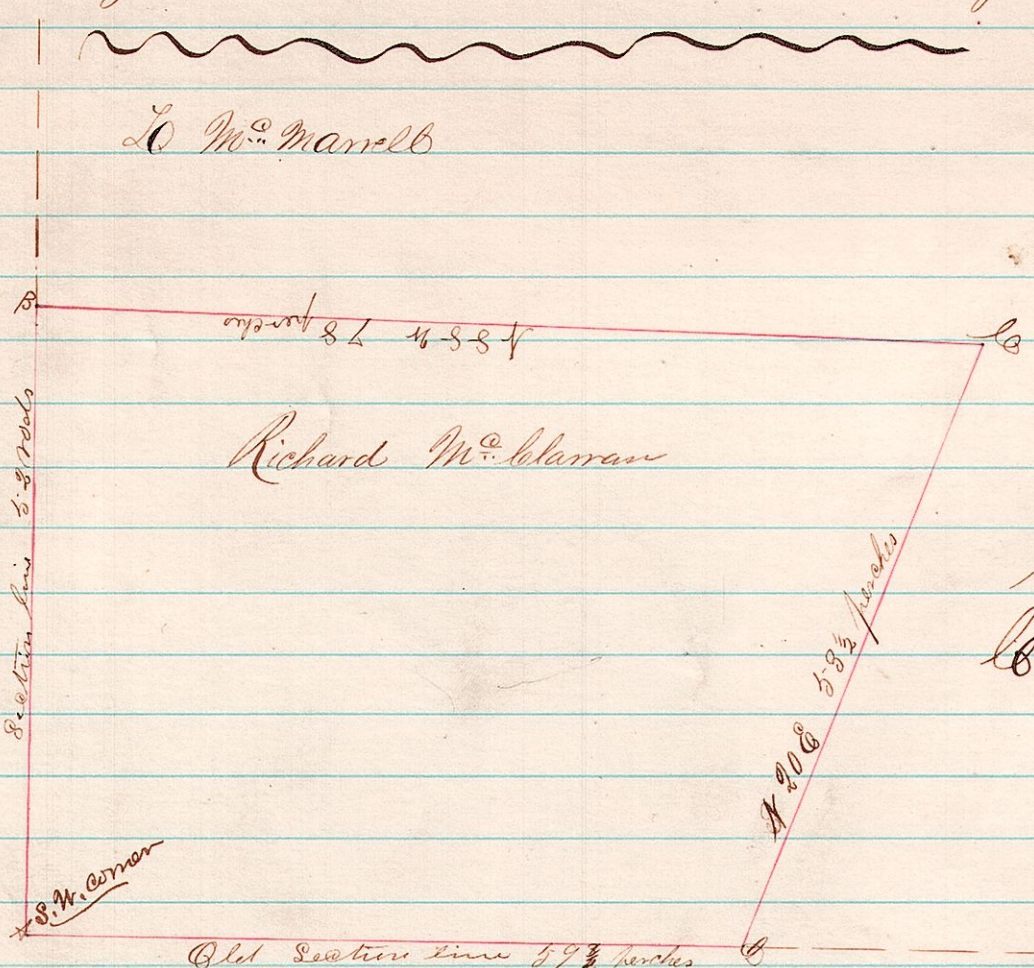 Mc Marrell
B
N 88 W 78 perches
C
Section line 52 rods
Richard Mc Clarran
N 20 E 53½ perches
S.W. Corner
Old Section Line 59¾ perches